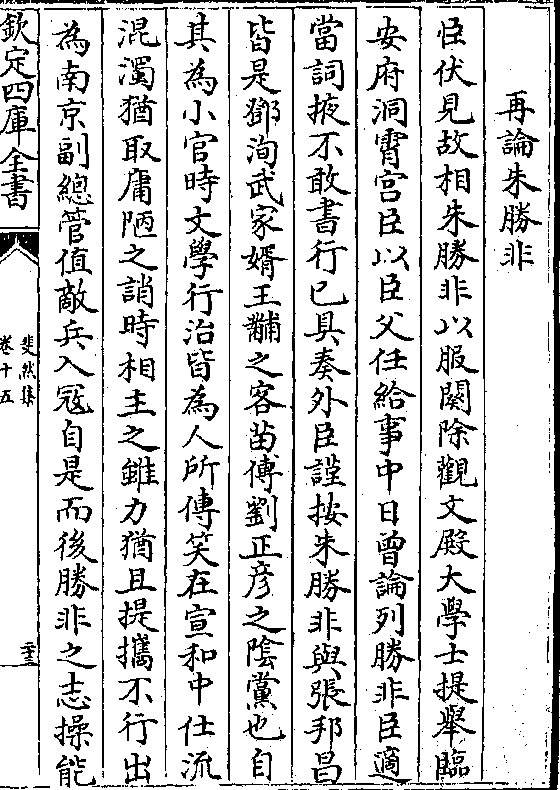 再論朱勝非
臣伏見故相朱勝非以服闋除觀文殿大學士提舉臨
安府洞霄宫臣以臣父任給事中日曾論列勝非臣適
當詞掖不敢書行已具奏外臣謹按朱勝非與張邦昌
皆是鄧洵武家婿王黼之客苗傅劉正彦之隂黨也自
其為小官時文學行治皆為人所傳笑在宣和中仕流
混濁猶取庸陋之誚時相主之雖力猶且提攜不行出
為南京副總管值敵兵入冦自是而後勝非之志操能
欽定四庫全書
斐然集
卷十五
二十三